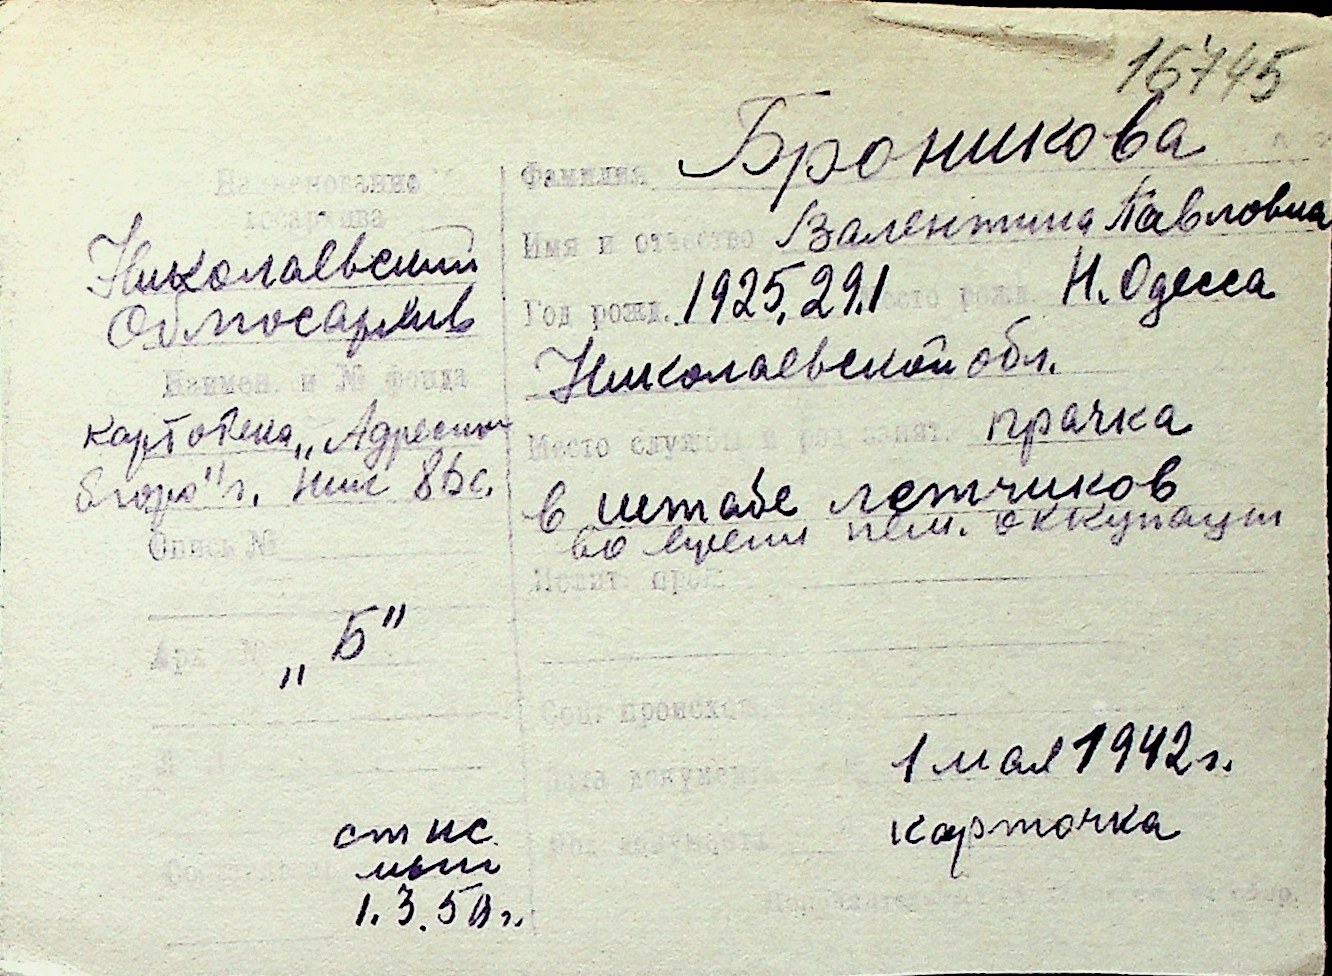 16745
Наименование
госархива
Николаевский
Облгосархив
Наимен. и № фонда
картотека „Адресно
бюро" г. Ник
Опись №
„Б"
Фамилия Броникова
Имя и отчество Валентина Павловна
Год рожд. 1925, 29.1 место рожд. Н. Одесса
Николаевской обл.
Место службы и занят. прачка
в штабе летчиков
во время нем. оккупации
Полит.
Соц. происхожд.
Дата документа 1 мая 1942 г.
Вид документа карточка
ст нс
1.3.50 г.